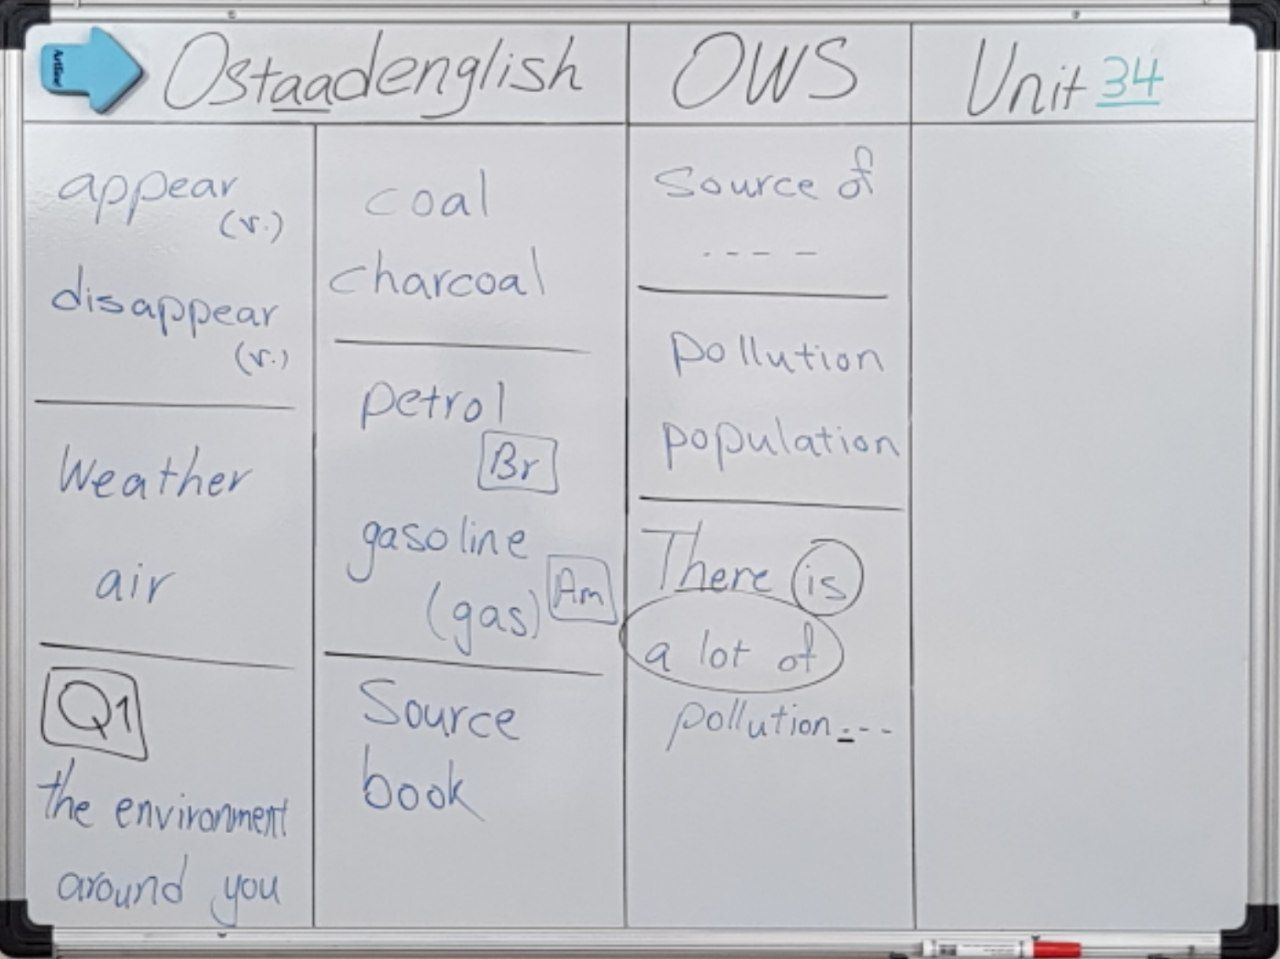 Artline
Ostaadenglish
OWS
Unit 34
appear
(v.)
disappear
(v.)
Weather
air
Q1
the environment
around you
coal
charcoal
petrol
Br
gasoline
(gas) Am
Source
book
Source of
- - - -
pollution
population
There is
a lot of
pollution - - -